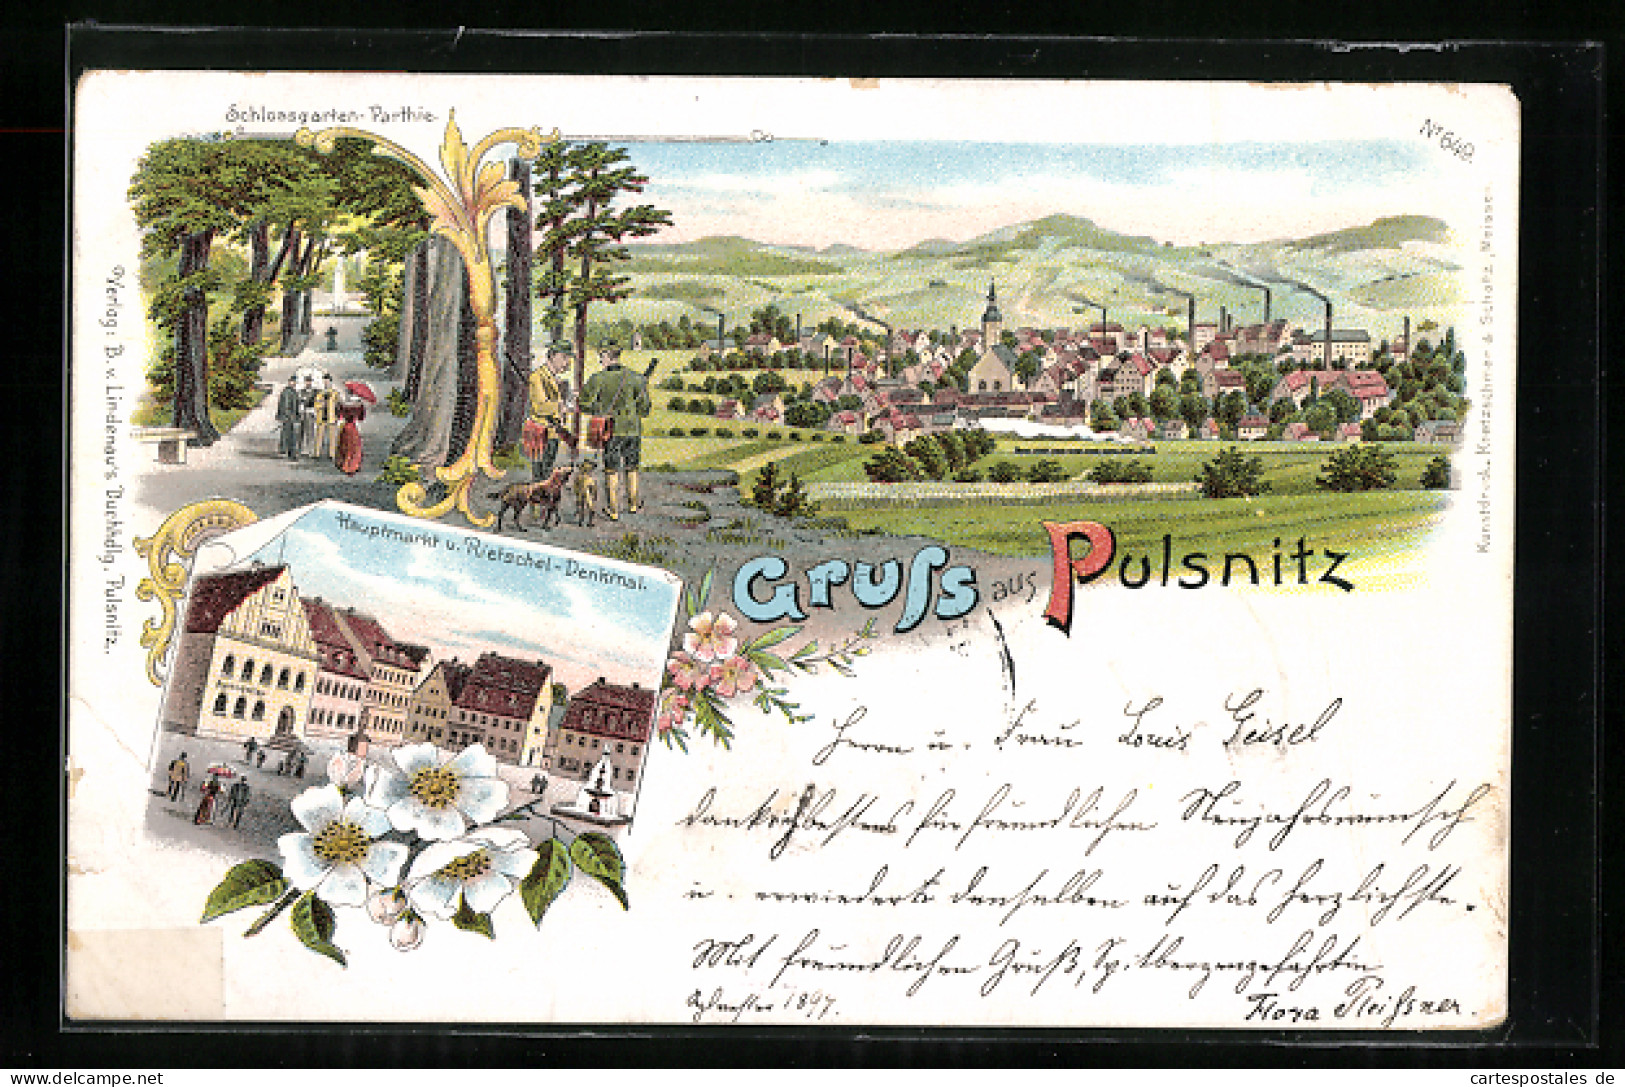 Schlossgarten-Parthie.
No 649.
Verlag. B. v. Lindenau's Buchhdlg. Pulsnitz.
Kunstdruck. Kretzschmar & Schatz, Meissen
Hauptmarkt u. Rietschel-Denkmal.
Gruss aus Pulsnitz
Herrn u. Frau Louis Geisel
dankt bestens für freundlichen Neujahrswunsch
u. erwiedert denselben auf das herzlichste.
Mit freundlichen Gruß, Spitbergengefährtin
Sylvester 1897. Flora Pleißner.
cartespostales de